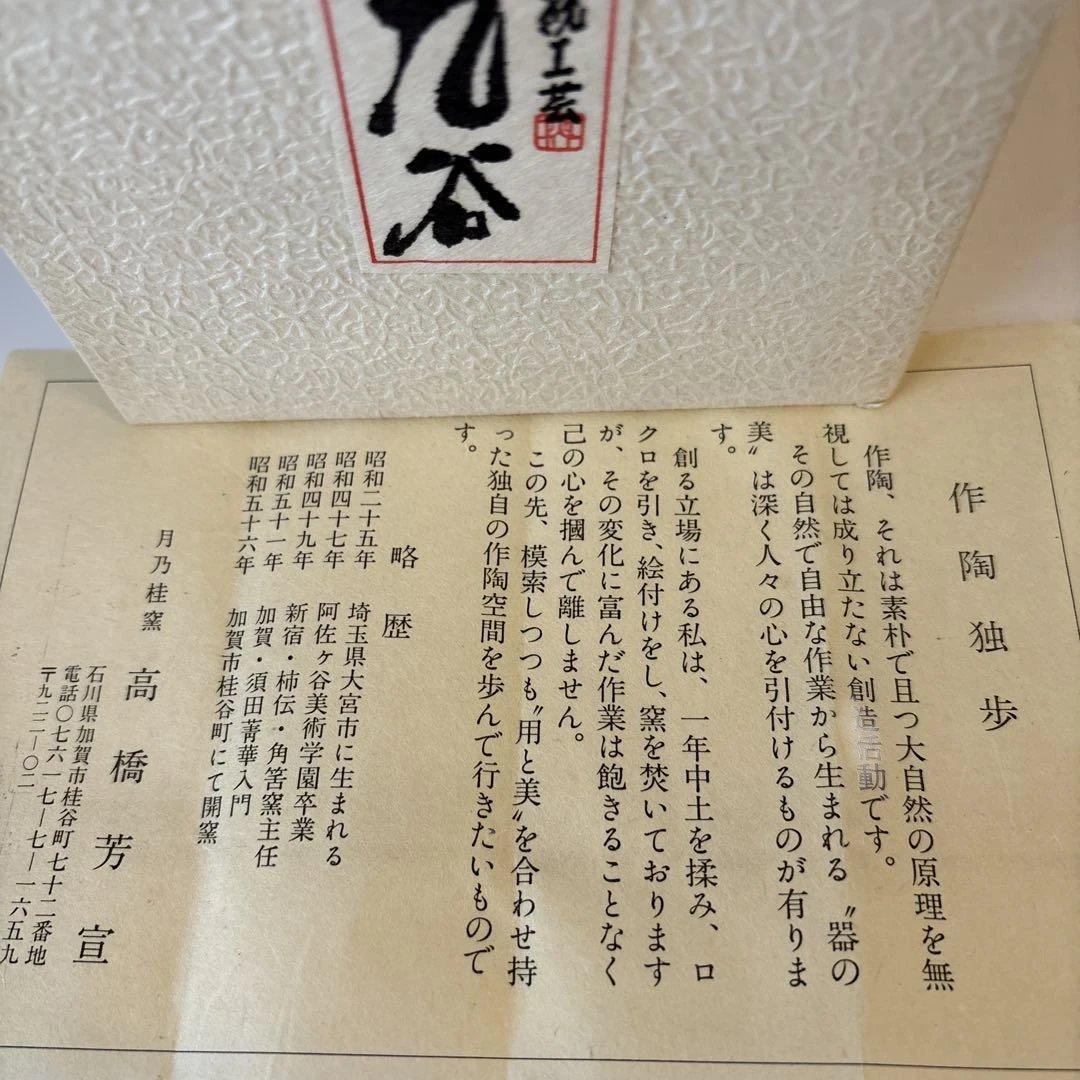 九谷
統工芸
作陶独歩
作陶、それは素朴で且つ大自然の原理を無
視しては成り立たない創造活動です。
その自然で自由な作業から生まれる〝器の
美〟は深く人々の心を引付けるものが有りま
す。
創る立場にある私は、一年中土を揉み、ロ
クロを引き、絵付けをし、窯を焚いております
が、その変化に富んだ作業は飽きることなく
己の心を摑んで離しません。
この先、模索しつつも〝用と美〟を合わせ持
った独自の作陶空間を歩んで行きたいもので
す。
略歴
昭和二十五年 埼玉県大宮市に生まれる
昭和四十七年 阿佐ヶ谷美術学園卒業
昭和四十九年 新宿・柿伝・角筈窯主任
昭和五十一年 加賀・須田菁華入門
昭和五十六年 加賀市桂谷町にて開窯
月乃桂窯 高橋芳宣
石川県加賀市桂谷町七十二番地
電話〇七六一七―七―一六五九
〒九二二―〇二